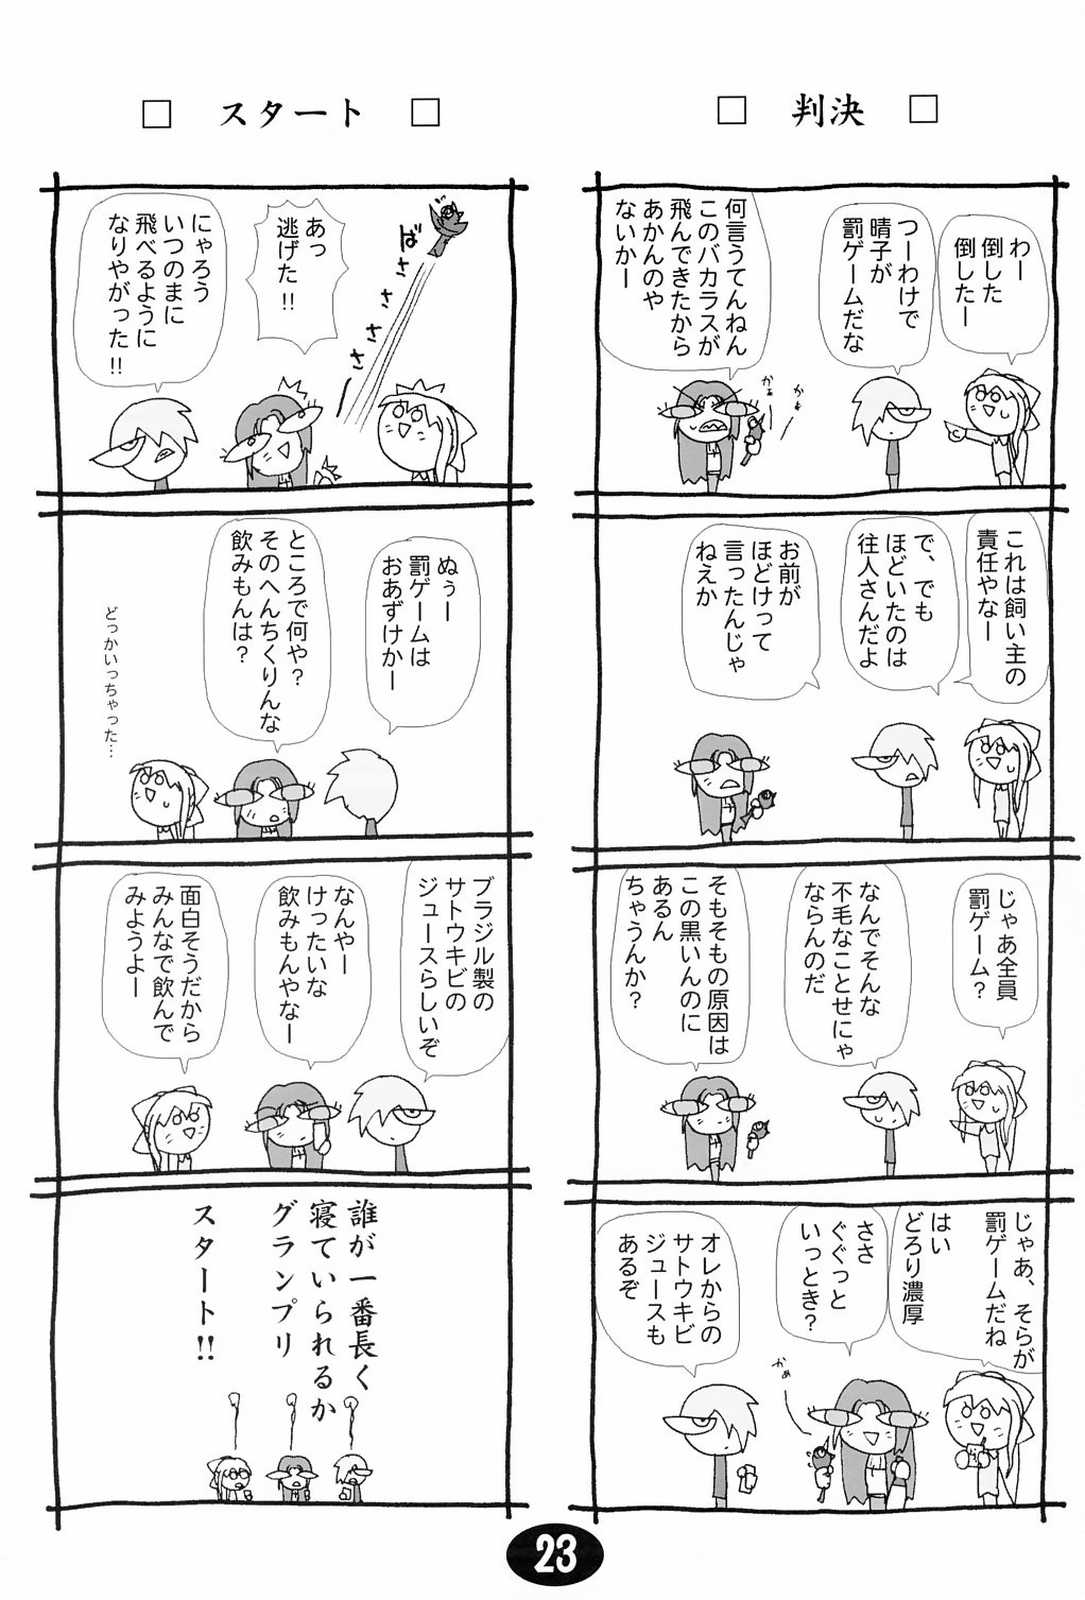 □ 判決 □
わー
倒した
倒したー
つーわけで
晴子が
罰ゲームだな
何言うてんねん
このバカラスが
飛んできたから
あかんのや
ないかー
かぁ
かぁ
これは飼い主の
責任やなー
で、でも
ほどいたのは
往人さんだよ
お前が
ほどけって
言ったんじゃ
ねえか
じゃあ全員
罰ゲーム?
なんでそんな
不毛なことせにゃ
ならんのだ
そもそもの原因は
この黒いんのに
あるん
ちゃうんか?
じゃあ、そらが
罰ゲームだね
はい
どろり濃厚
ささ
ぐぐっと
いっとき?
かぁ
オレからの
サトウキビ
ジュースも
あるぞ
□ スタート □
ばささささ
あっ
逃げた!!
にゃろう
いつのまに
飛べるように
なりやがった!!
ぬぅー
罰ゲームは
おあずけかー
ところで何や?
そのへんちくりんな
飲みもんは?
どっかいっちゃった…
ブラジル製の
サトウキビの
ジュースらしいぞ
なんやー
けったいな
飲みもんやなー
面白そうだから
みんなで飲んで
みようよー
誰が一番長く
寝ていられるか
グランプリ
スタート!!
23